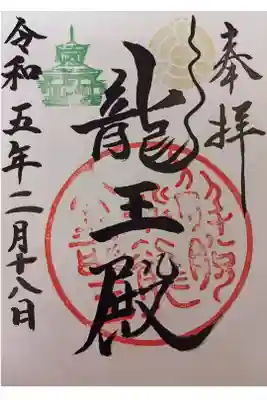 奉拝
龍王殿
令和五年二月十八日